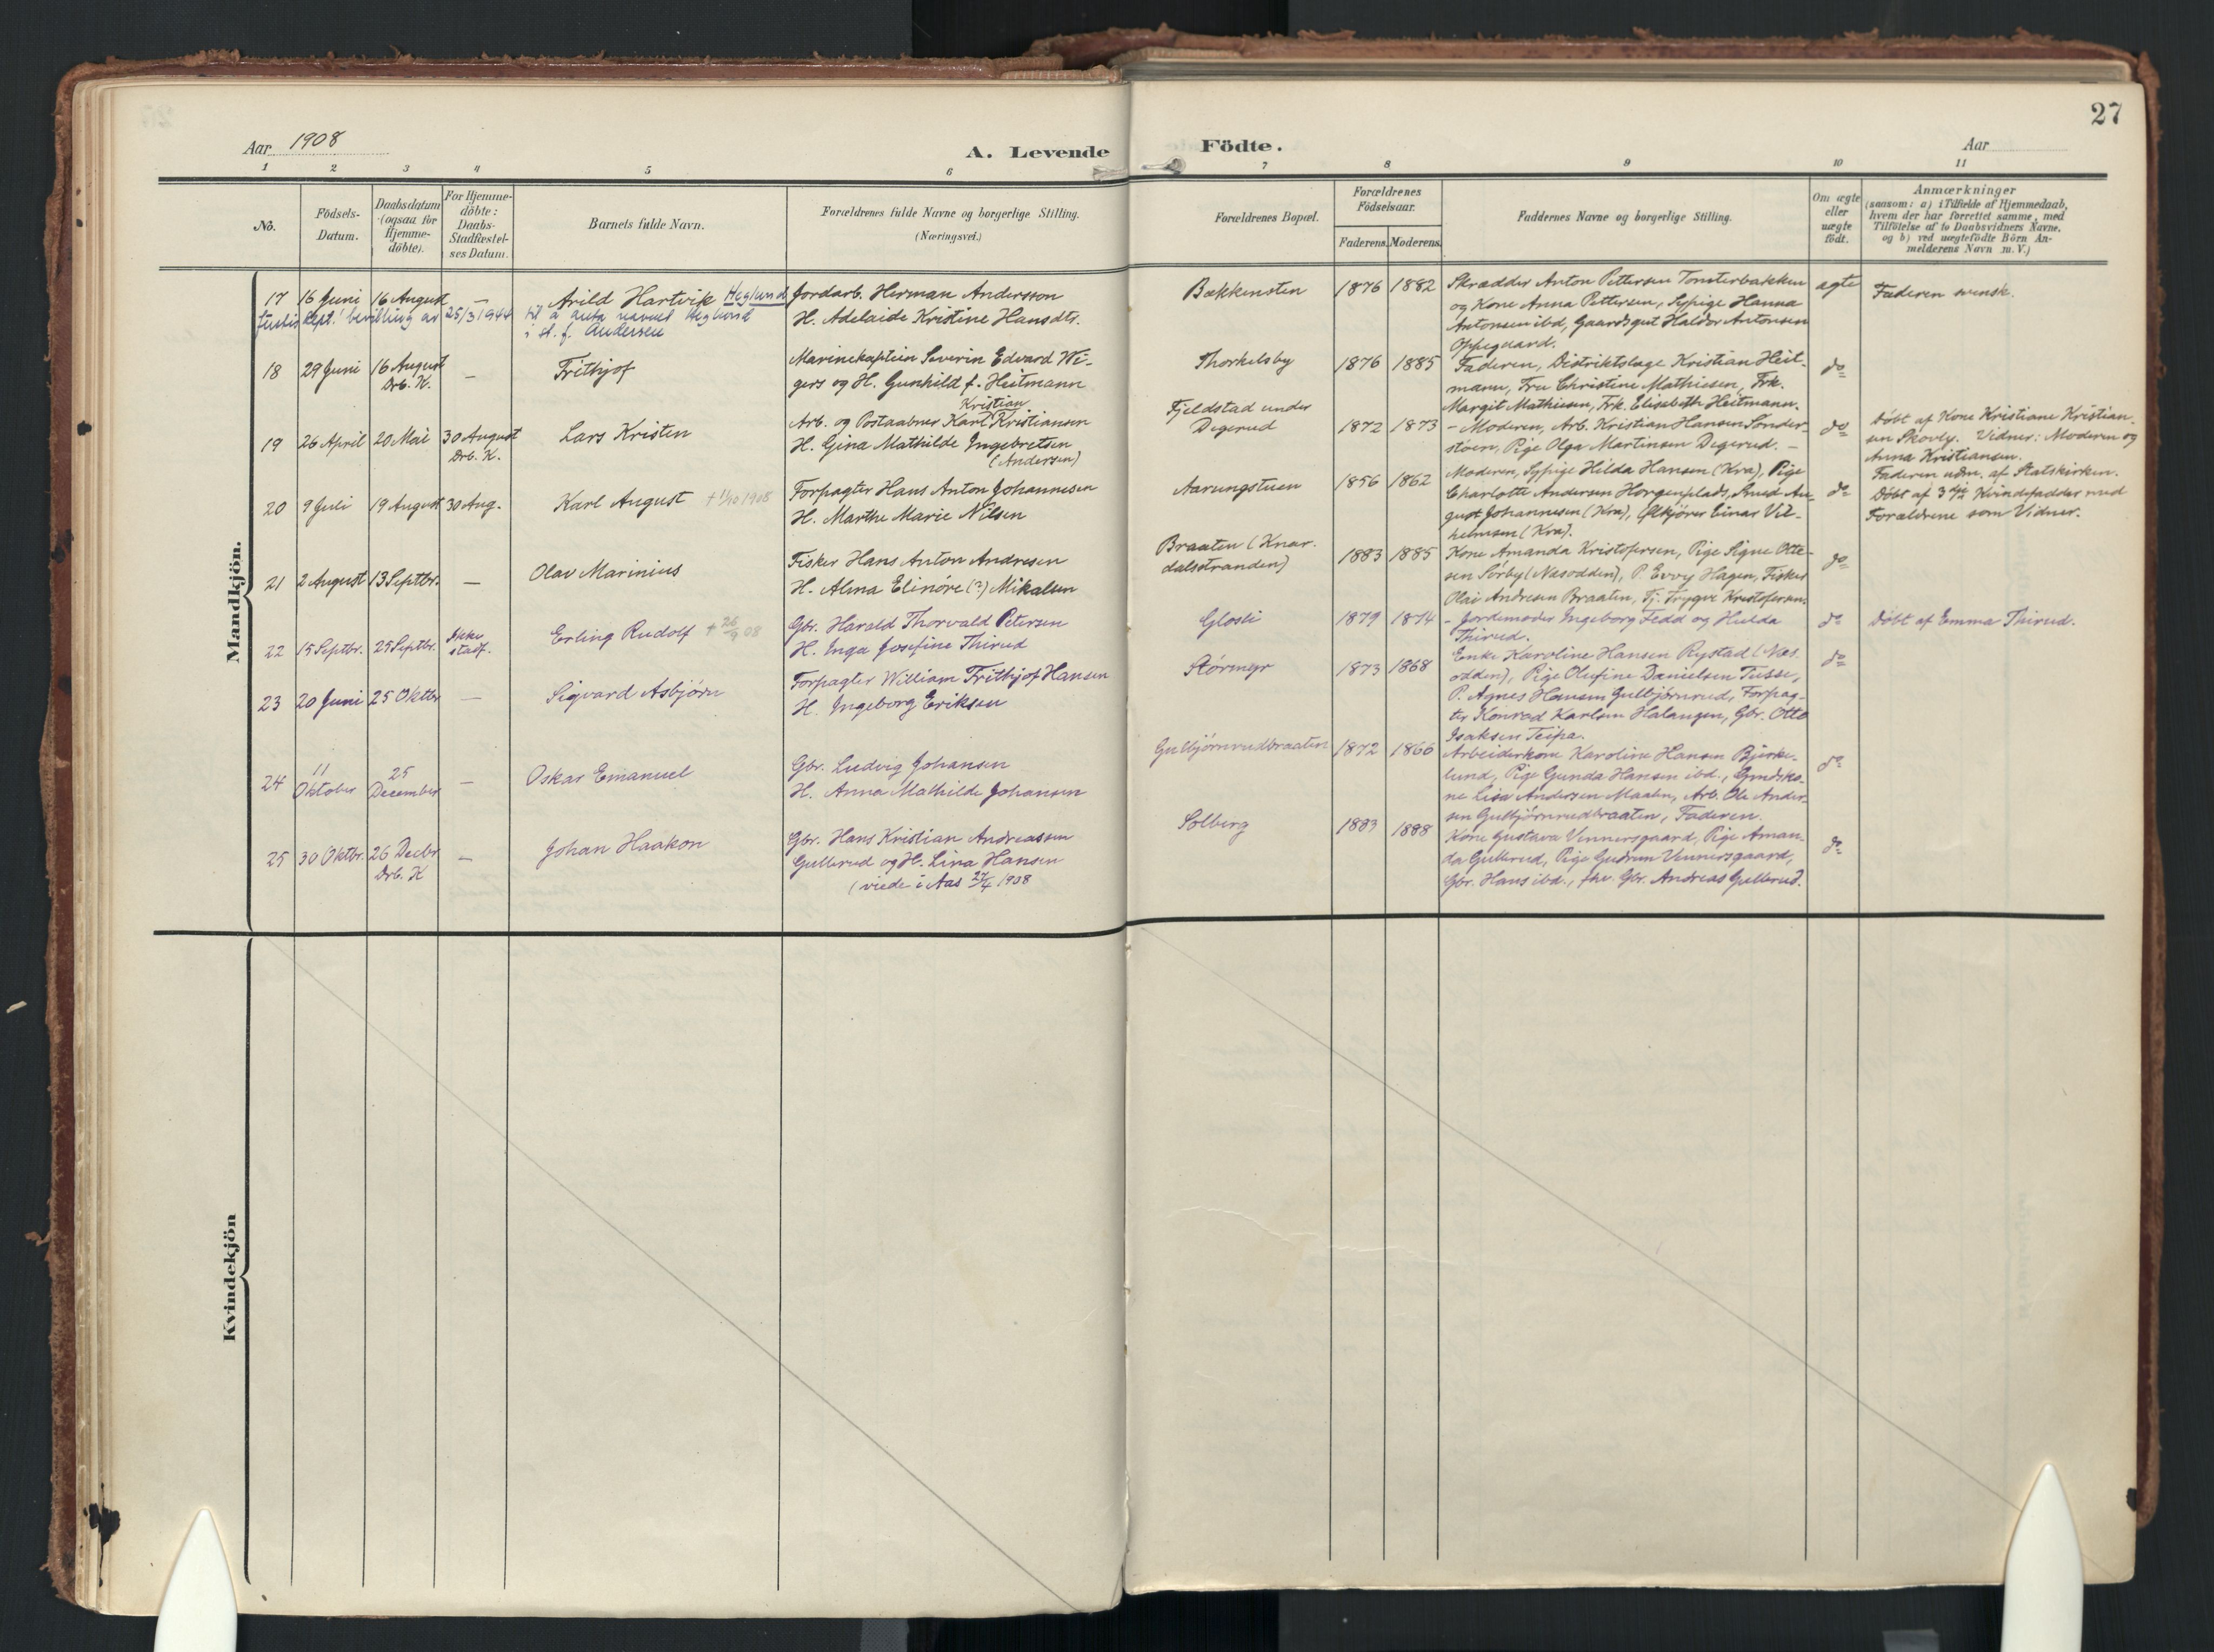 27
Aar 1908
A. Levende Födte.
Aar
1 2 3 4 5 6 7 8 9 10 11
No.
Födsels-
Datum.
Daabsdatum
(ogsaa for
Hjemme-
döbte).
For Hjemme-
döbte:
Daabs-
Stadfæstel-
ses Datum.
Barnets fulde Navn.
Forældrenes fulde Navne og borgerlige Stilling.
(Næringsvei.)
Forældrenes Bopæl.
Forældrenes
Födselsaar.
Faderens. Moderens.
Faddernes Navne og borgerlige Stilling.
Om ægte
eller
uægte
födt.
Anmærkninger
(saasom: a) i Tilfælde af Hjemmedaab,
hvem der har forrettet samme, med
Tilföielse af to Daabsvidners Navne.
og b) ved uægtefödte Börn An-
melderens Navn m. V.)
Mandkjön.
17 16 Juni 16 August — Arild Hartvik Heglund
Justisdept.' bevilling av 25/3 1944 til å anta navnet Heglund
i st. f. Andersen
Jordarb. Herman Andersson
H. Adelaide Kristine Hansdtr.
Bækkensten 1876 1882
Skrædder Anton Pettersen Tomterbakken
og Kone Anna Pettersen, Sypige Hanna
Antonsen ibd, Gaardsgut Haldor Antonsen
Oppegaard.
ægte
Faderen svensk.
18 29 Juni 16 August — Frithjof
Drb. K.
Marinekaptein Severin Edvard Wi-
gers og H. Gunhild f. Heitmann
Thorkelsby 1876 1885
Faderen, Distriktslæge Kristian Heit-
mann, Fru Christine Mathiesen, Frk.
Margit Mathiesen, Frk. Elisabeth Heitmann.
do
19 26 April 20 Mai 30 August Lars Kristen
Drb. K.
Kristian
Arb. og Postaabner Karl Kristiansen
H. Gina Mathilde Ingebretsen
(Andersen)
Fjeldstad under
Digerud 1872 1873
- Moderen, Arb. Kristian Hansen Sønder-
støen, Pige Olga Martinsen Digerud. -
do
Døbt af Kone Kristiane Kristian-
sen Skovly. Vidner: Moderen og
Anna Kristiansen.
Faderen udm. af Statskirken.
20 9 Juli 19 August 30 Aug. Karl August † 1/10 1908
Forpagter Hans Anton Johannesen
H. Marthe Marie Nilsen
Aarungstuen 1856 1862
Moderen, Sypige Hilda Hansen (Kra), Pige
Charlotte Andersen Horgenplads, Smed Au-
gust Johannesen (Kra), Ølkjører Einar Vil-
helmsen (Kra).
do
Døbt af 3dje Kvindefadder med
Forældrene som Vidner.
21 2 August 13 Septbr. — Olav Marinius
Fisker Hans Anton Andresen
H. Alma Elinóre (?) Mikalsen
Braaten (Knar-
dalsstranden) 1883 1885
Kone Amanda Kristofersen, Pige Signe Otte-
sen Sørby (Nasodden), P. Evvy Hagen, Fisker
Olai Andresen Braaten, Tj. Trygve Kristofersen.
do
22 15 Septbr. 25 Septbr. Ikke
stadf. Erling Rudolf † 26/9 08
Gbr. Harald Thorvald Petersen
H. Inga Josefine Thirud
Glosli 1879 1874
- Jordemoder Ingeborg Fedd og Hulda
Thirud.
do
Døbt af Emma Thirud.
23 20 Juni 25 Oktbr — Sigvard Asbjørn
Forpagter William Frithjof Hansen
H. Ingeborg Eriksen
Størmyr 1873 1868
Enke Karoline Hansen Rystad (Næs-
odden), Pige Olufine Danielsen Tusse,
P. Agnes Hansen Gulbjørnrud, Forpag-
ter Konrad Karlsen Halangen, Gbr. Otto
Isaksen Teipa.
do
24 11
Oktober 25
December — Oskar Emanuel
Gbr. Ludvig Johansen
H. Anna Mathilde Johansen
Gulbjørnrudbraaten 1872 1866
Arbeiderkone Karoline Hansen Bjerke-
lund, Pige Gunda Hansen ibd., Grndsko-
ne Lisa Andersen Maaln, Arb. Ole Ander-
sen Gulbjørnrudbraaten, Faderen.
do
25 30 Oktbr. 26 Decbr — Johan Haakon
Drb. K
Gbr. Hans Kristian Andreassen
Gullerud og H. Lina Hansen
(viede i Aas 27/4 1908
Solberg 1883 1888
Kone Gustava Vennersgaard, Pige Aman-
da Gullerud, Pige Gudrun Vennersgaard,
Gbr. Hans ibd., fhv. Gbr. Andreas Gullerud.
do
Kvindekjön